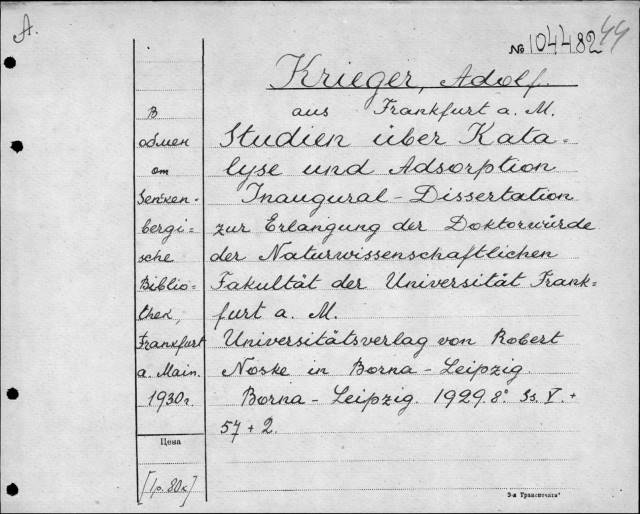 A.
№ 104482
44
Krieger, Adolf.
aus Frankfurt a. M.
Studien über Kata=
lyse und Adsorption
Inaugural-Dissertation
zur Erlangung der Doktorwürde
der Naturwissenschaftlichen
Fakultät der Universität Frank=
furt a. M.
Universitätsverlag von Robert
Noske in Borna-Leipzig.
Borna-Leipzig. 1929. 8° Ss. V. +
57 + 2.
В
обмен
от
Senken-
bergi=
sche
Biblio=
thek,
Frankfurt
a. Main.
1930 г.
Цена
[1 р. 80 к]
Э-я Транспечать